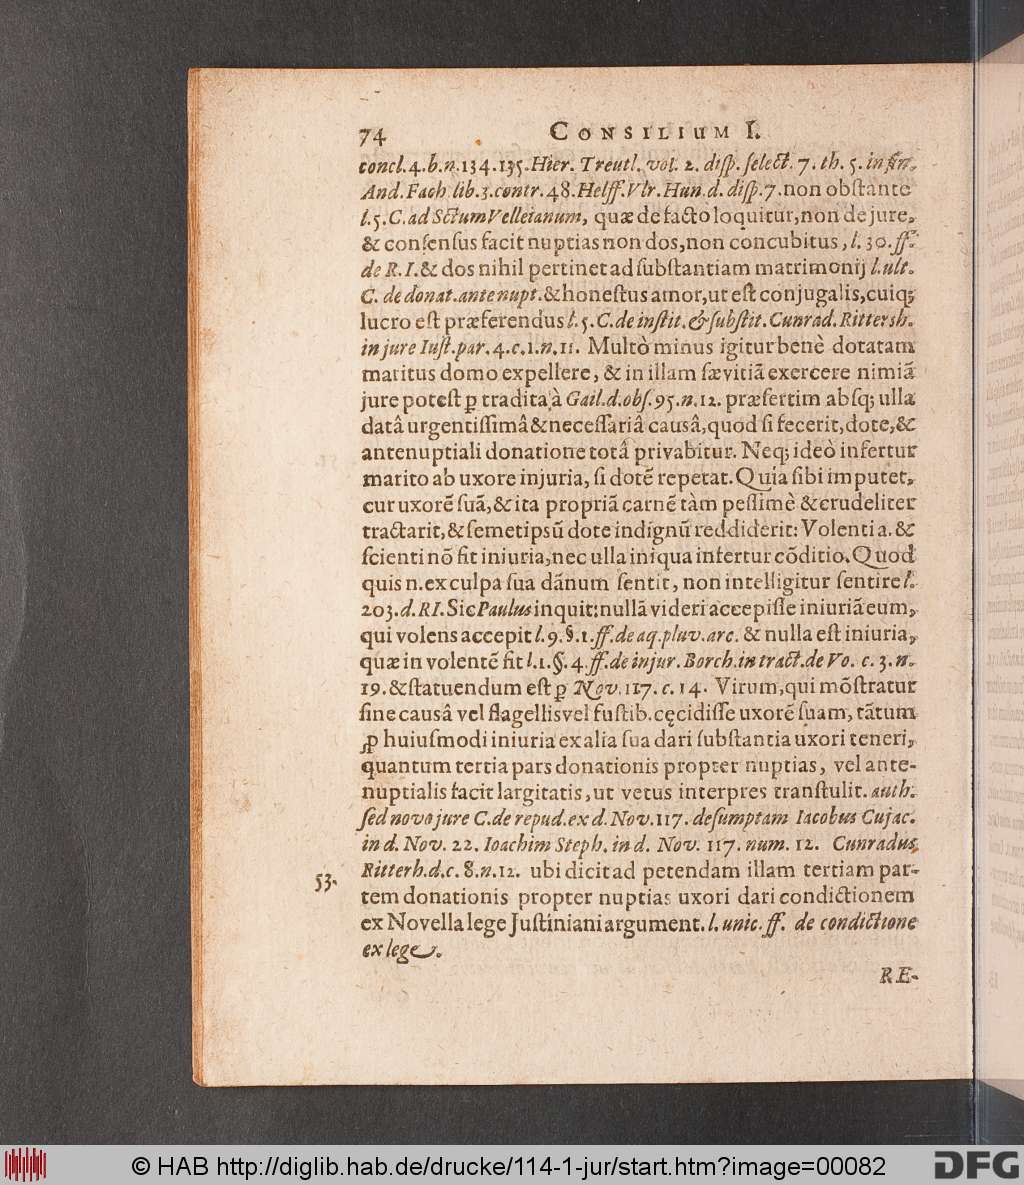 74 CONSILIUM I.
concl.4.b.n.134.135.Hier. Treutl. vol. 2. disp. select. 7. th. 5. in fin.
And. Fach lib.3.contr.48.Helff.Vlr.Hun.d.disp.7.non obstante
l.5.C.ad SCtum Velleianum, quæ de facto loquitur,non de jure,
& consensus facit nuptias non dos,non concubitus, l.30.ff.
de R.I.& dos nihil pertinet ad substantiam matrimonij l.ult.
C. de donat.ante nupt.& honestus amor,ut est conjugalis,cuiq;
lucro est præferendus l.5.C.de instit.& substit.Cunrad.Rittersh.
in jure Iust.par.4.c.1.n.11. Multò minus igitur benè dotatam
maritus domo expellere, & in illam sævitiã exercere nimiã
jure potest ꝑ tradita à Gail.d.obs.95.n.12. præsertim absq; ulla
datâ urgentissimâ & necessariâ causâ,quod si fecerit,dote,&
antenuptiali donatione totâ privabitur. Neq; ideò infertur
marito ab uxore injuria, si dotẽ repetat. Quia sibi imputet,
cur uxorẽ suã,& ita propriã carnẽ tàm pessimè & crudeliter
tractarit,& semetipsũ dote indignũ reddiderit: Volenti a. &
scienti nõ fit iniuria,nec ulla iniqua infertur cõditio. Quod
quis n.ex culpa sua dãnum sentit, non intelligitur sentire l.
203.d.RI.Sic Paulus inquit:nullã videri accepisse iniuriã eum,
qui volens accepit l.9.§.1.ff.de aq.pluv.arc. & nulla est iniuria,
quæ in volentẽ fit l.1.§.4.ff.de injur.Borch.in tract.de Vo. c.3.n.
19.& statuendum est ꝑ Nov.117.c.14. Virum,qui mõstratur
sine causâ vel flagellis vel fustib.cęcidisse uxorẽ suam, tãtum
ꝓ huiusmodi iniuria ex alia sua dari substantia uxori teneri,
quantum tertia pars donationis propter nuptias, vel ante-
nuptialis facit largitatis, ut vetus interpres transtulit. auth.
sed novo jure C.de repud.ex d.Nov.117. desumptam Iacobus Cujac.
in d. Nov. 22. Ioachim Steph. in d. Nov. 117. num. 12. Cunradus
53. Ritterh.d.c.8.n.12. ubi dicit ad petendam illam tertiam par-
tem donationis propter nuptias uxori dari condictionem
ex Novella lege Justiniani argument.l.unic.ff. de condictione
ex lege.
RE-
© HAB http://diglib.hab.de/drucke/114-1-jur/start.htm?image=00082 DFG